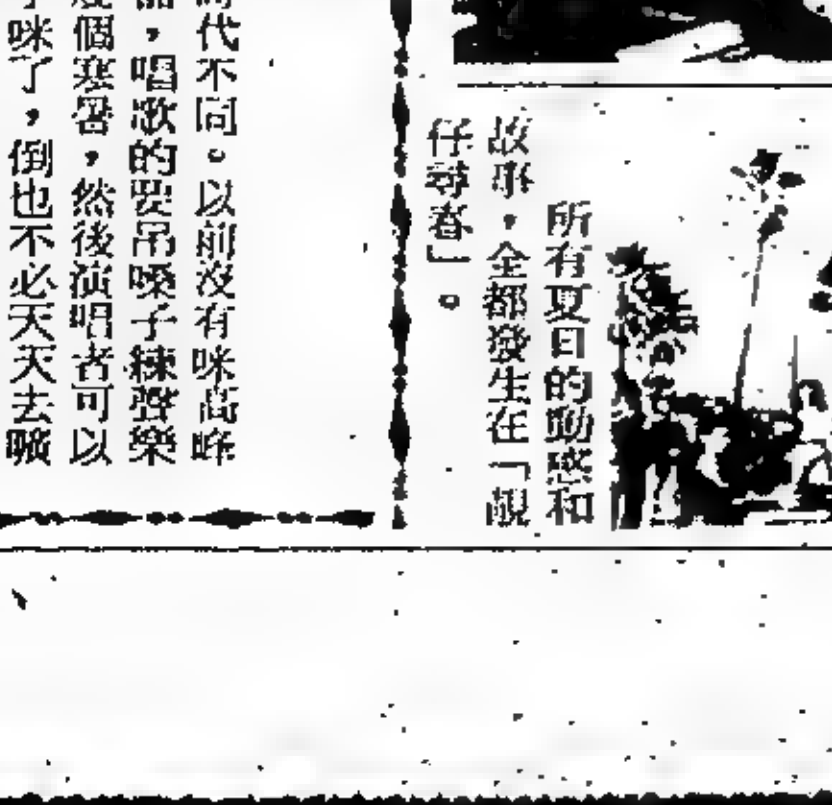 所有夏日的動感和
故事，全都發生在「靚
仔尋春」。
代不同。以前沒有咪高峰
，唱歌的要吊嗓子練聲樂
個寒暑，然後演唱者可以
咪了，倒也不必天天去曠